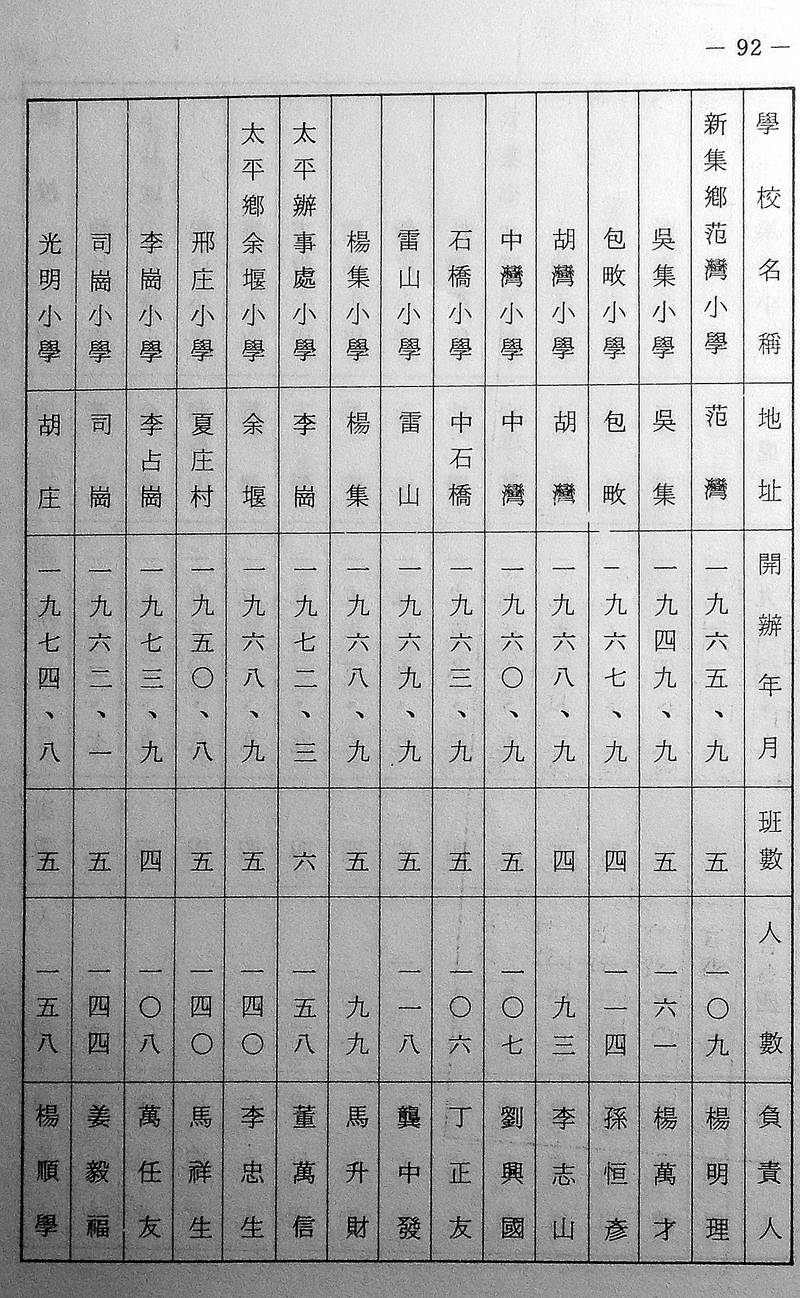 — 92 —
學校名稱 地址 開辦年月 班數 人數 負責人
新集鄉范灣小學 范灣 一九六五、九 五 一〇九 楊明理
吳集小學 吳集 一九四九、九 五 一六一 楊萬才
包畈小學 包畈 一九六七、九 四 一一四 孫恒彥
胡灣小學 胡灣 一九六八、九 四 九三 李志山
中灣小學 中灣 一九六〇、九 五 一〇七 劉興國
石橋小學 中石橋 一九六三、九 五 一〇六 丁正友
雷山小學 雷山 一九六九、九 五 一一八 龔中發
楊集小學 楊集 一九六八、九 五 九九 馬升財
太平辦事處小學 李崗 一九七二、三 六 一五八 董萬信
太平鄉余堰小學 余堰 一九六八、九 五 一四〇 李忠生
邢庄小學 夏庄村 一九五〇、八 五 一四〇 馬祥生
李崗小學 李占崗 一九七三、九 四 一〇八 萬任友
司崗小學 司崗 一九六二、一 五 一四四 姜毅福
光明小學 胡庄 一九七四、八 五 一五八 楊順學